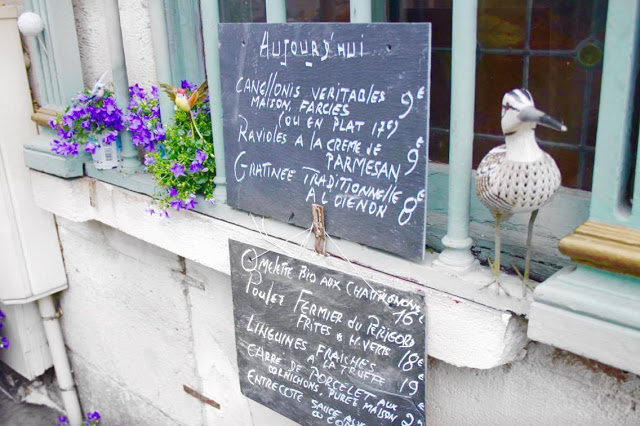 AUJOURD'HUI
CANELLONIS VERITABLES
MAISON, FARCIES 9€
(OU EN PLAT 17€)
RAVIOLES A LA CREME DE
PARMESAN 9€
GRATINEE TRADITIONNELLE
A L'OIGNON 8€
OMELETTE BIO AUX CHAMPIGNONS
16€
POULET FERMIER DU PÉRIGORD
FRITES & H. VERTS 18€
LINGUINES FRAICHES
A LA TRUFFE 19€
CARRE DE PORCELET AUX
CORNICHONS, PUREE MAISON
ENTRECOTE SAUCE AUX